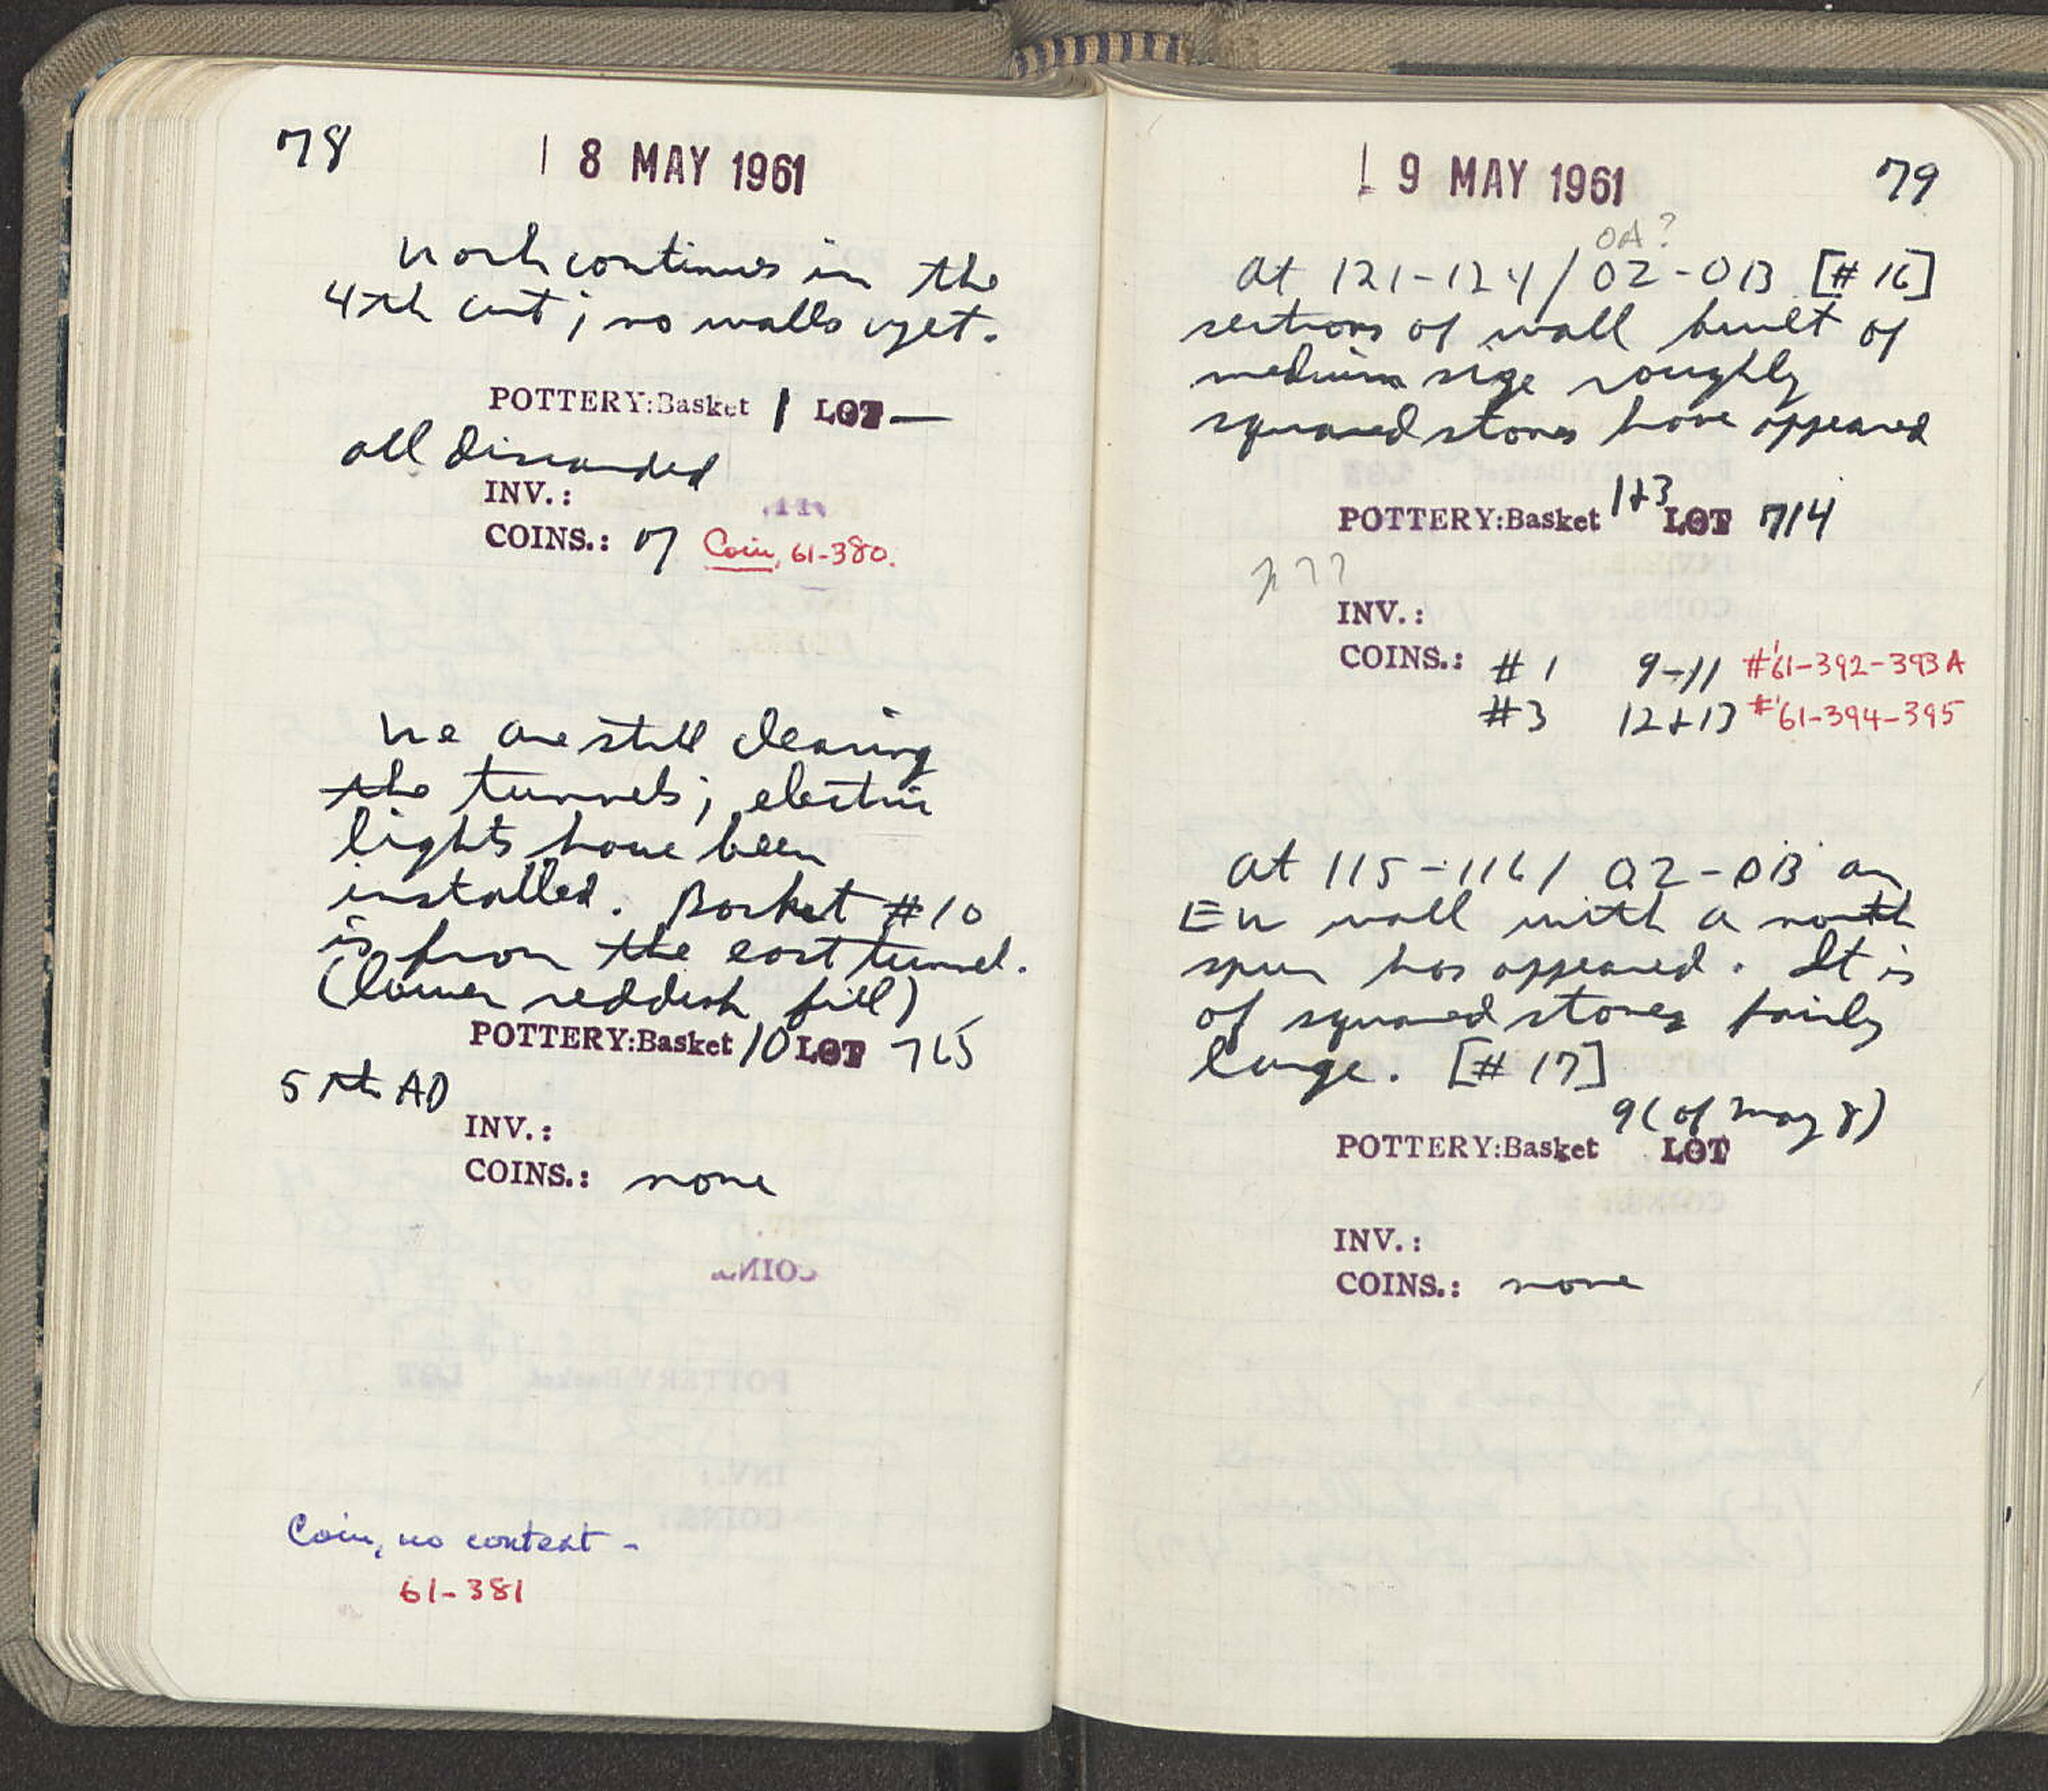 78
8 MAY 1961
work continues in the
4th cut; no walls yet.
POTTERY:Basket 1 LOT —
all discarded
INV.:
COINS.: 7 Coin, 61-380.
We are still clearing
the tunnels; electric
lights have been
installed. Basket #10
is from the east tunnel.
(lower reddish fill)
POTTERY:Basket 10 LOT 715
5th AD
INV.:
COINS.: none
Coin, no context -
61-381
9 MAY 1961
79
OA?
at 121-124/02-0B [#16]
sections of wall built of
medium size roughly
squared stones have appeared
POTTERY:Basket 1+3 LOT 714
???
INV.:
COINS.: #1 9-11 #'61-392-393A
#3 12+13 #'61-394-395
at 115-116/ 02-0B an
EW wall with a north
spur has appeared. It is
of squared stones fairly
large. [#17]
9 (of May 8)
POTTERY:Basket LOT
INV.:
COINS.: none